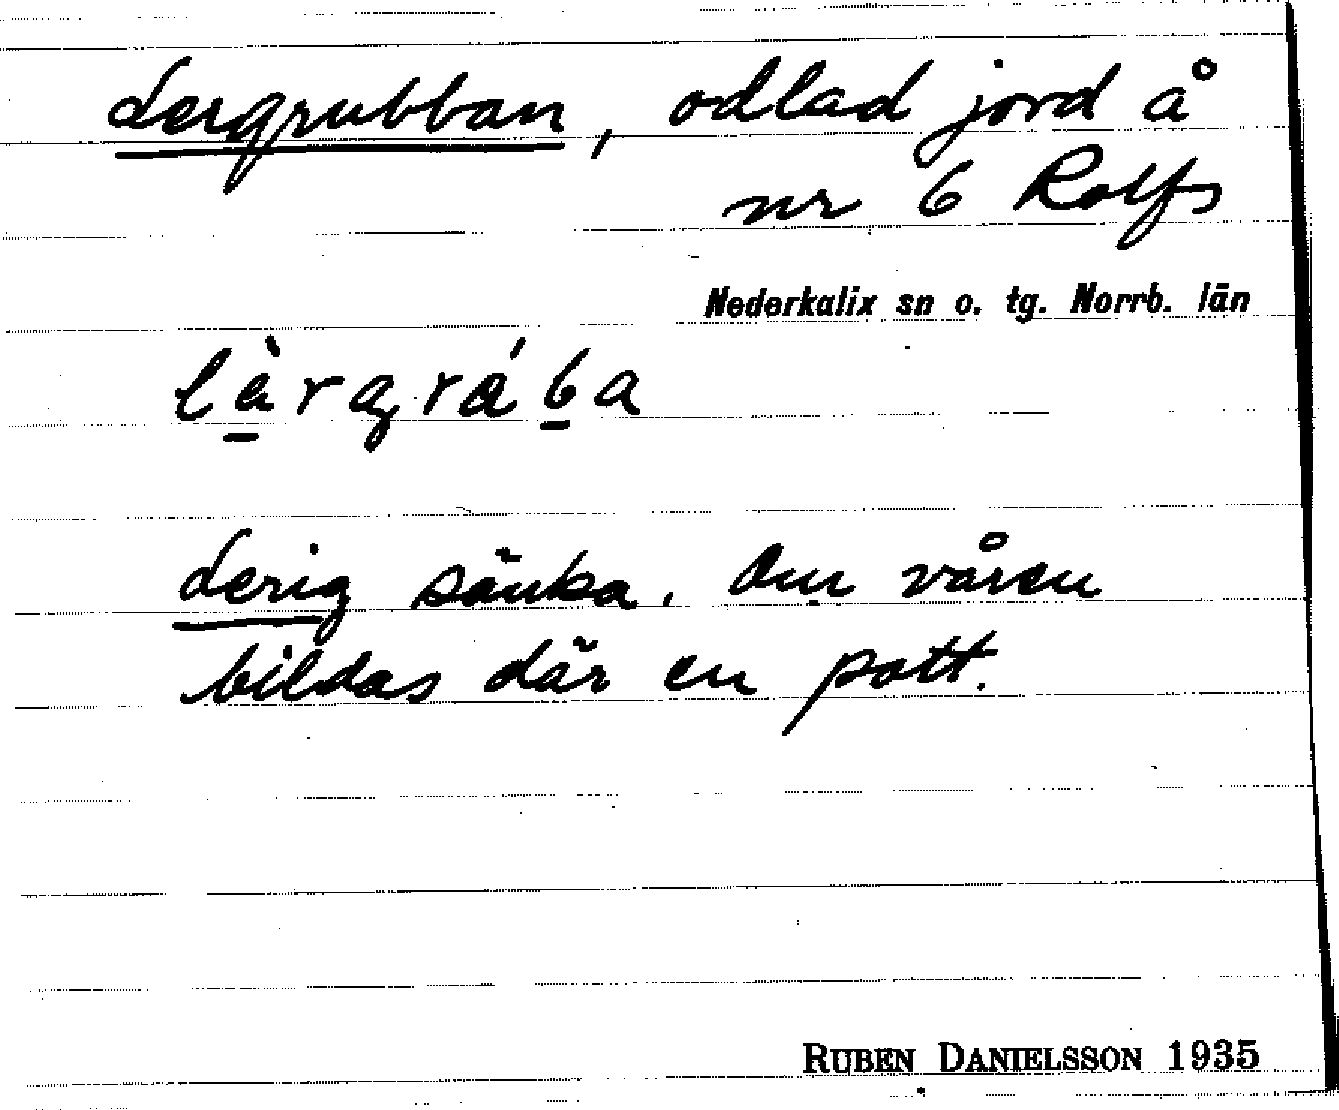 Lergrubban, odlad jord å
nr 6 Rolfs
Nederkalix sn o. tg. Norrb. län
Lerig sänka. Om våren
bildas där en pott.
RUBEN DANIELSSON 1935